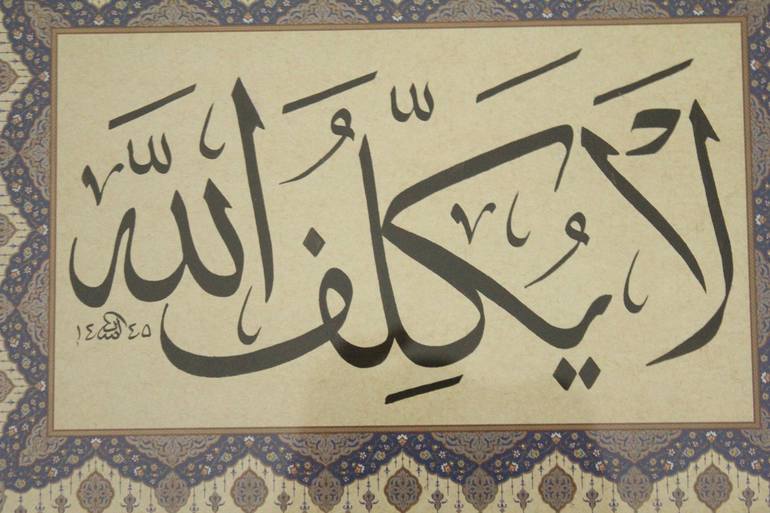 لَا يُكَلِّفُ اللَّهُ
١٤٤٥